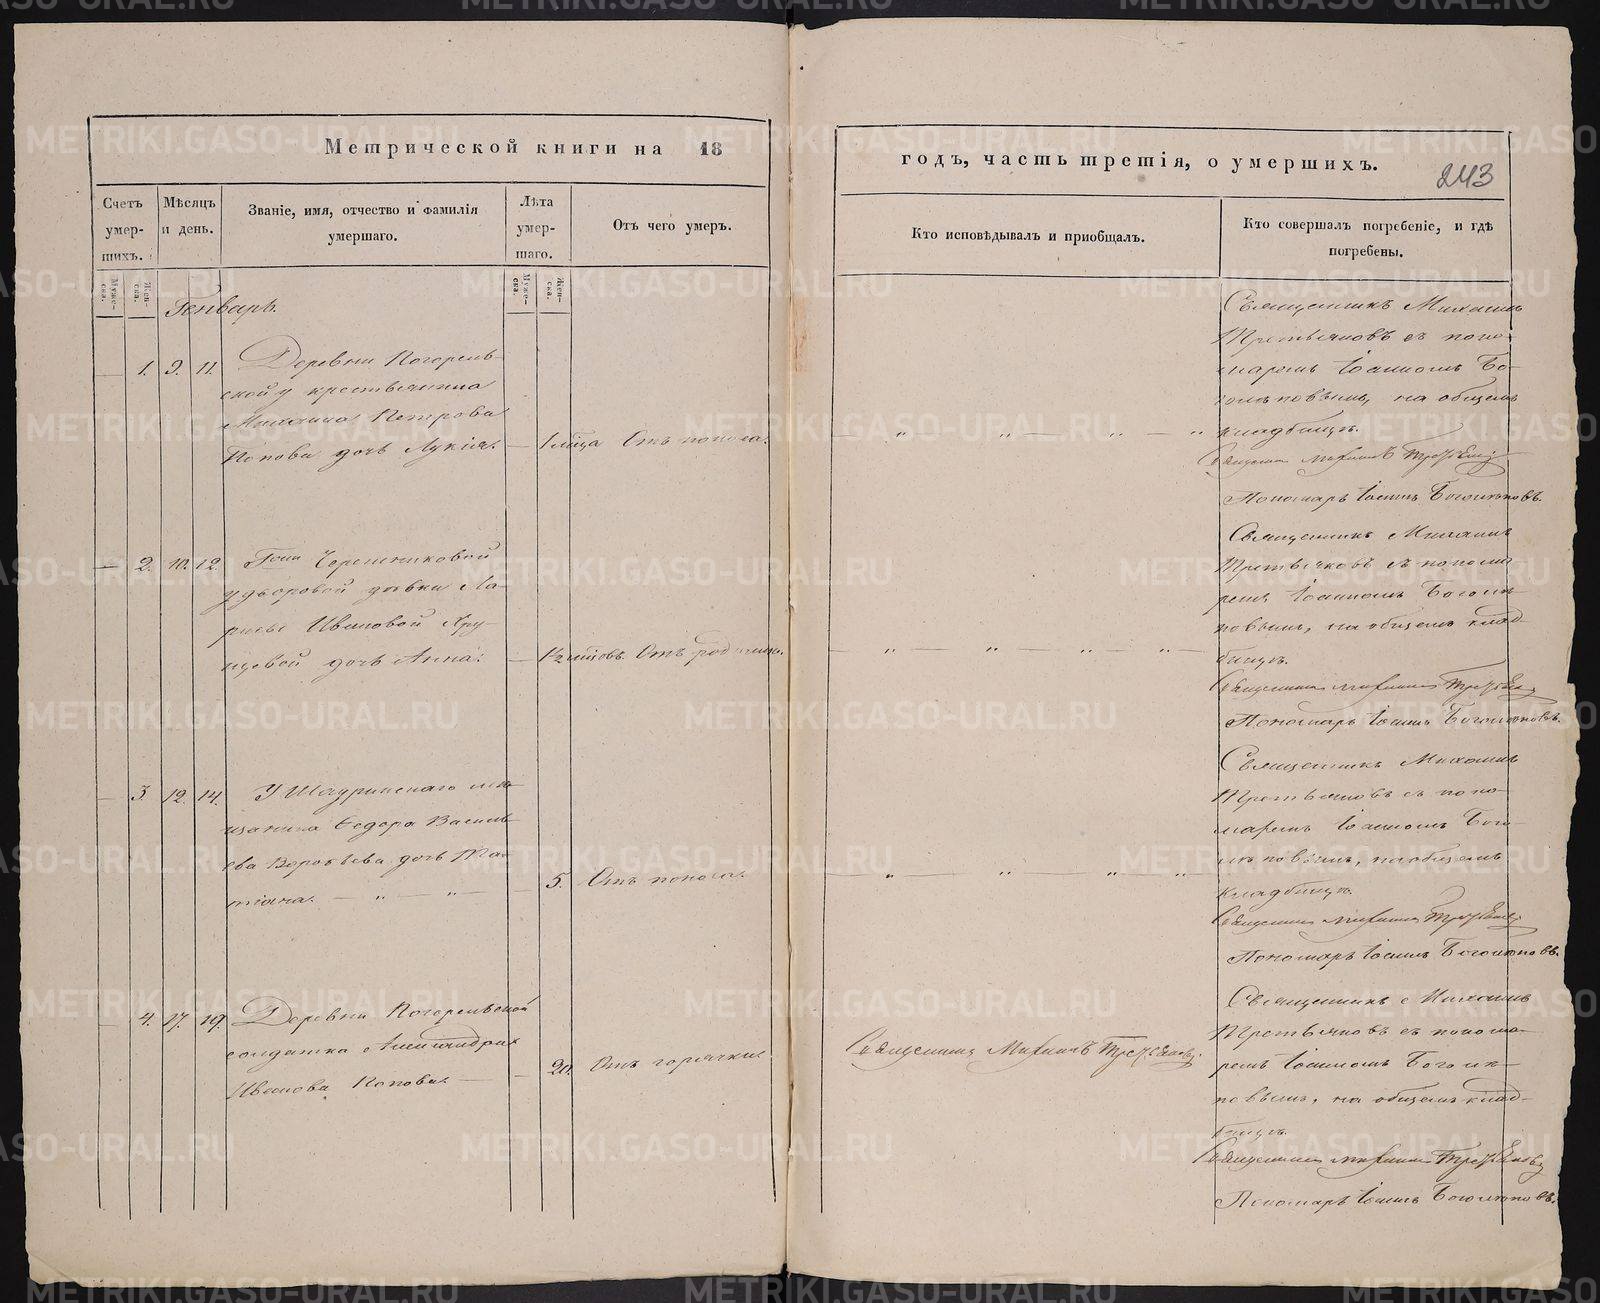 Метрической книги на 18
годъ, часть третія, о умершихъ.
243
Счетъ умер-шихъ.
Мѣсяцъ и день.
Званіе, имя, отчество и фамилія умершаго.
Лѣта умер-шаго.
Отъ чего умеръ.
Кто исповѣдывалъ и приобщалъ.
Кто совершалъ погребеніе, и гдѣ погребены.
Муже-ска.
Жен-ска.
Муже-ска.
Жен-ска.
Генварь.
1. 9. 11.
Деревни Погорель-
ской у крестьянина
Михаила Петрова
Попова дочь Лукія.
Отъ поноса.
Священникъ Михаилъ
Третьяковъ съ поно-
маремъ Іоанномъ Бо-
голѣповымъ, на общемъ
кладбищѣ.
Священникъ Михаилъ Третьяковъ
Пономарь Іоаннъ Боголѣповъ.
2. 10. 12.
у дворовой дѣвки Ла-
рисы Ивановой
дочь Анна.
Отъ родимца.
Священникъ Михаилъ
Третьяковъ съ понома-
ремъ Іоанномъ Боголѣ-
повымъ, на общемъ клад-
бищѣ.
Священникъ Михаилъ Третьяковъ
Пономарь Іоаннъ Боголѣповъ.
3. 12. 14.
У Шадринскаго мѣ-
щанина Ѳедора Василь-
ева Воробьева дочь Та-
тіана.
5. Отъ поноса.
Священникъ Михаилъ
Третьяковъ съ поно-
маремъ Іоанномъ Бого-
лѣповымъ, на общемъ
кладбищѣ.
Священникъ Михаилъ Третьяковъ
Пономарь Іоаннъ Боголѣповъ.
4. 17. 19.
Деревни Погорельской
солдатка Александра
Иванова Попова.
20. Отъ горячки.
Священникъ Михаилъ Третьяковъ.
Священникъ Михаилъ
Третьяковъ съ понома-
ремъ Іоанномъ Боголѣ-
повымъ, на общемъ клад-
бищѣ.
Священникъ Михаилъ Третьяковъ
Пономарь Іоаннъ Боголѣповъ.
METRIKI.GASO-URAL.RU